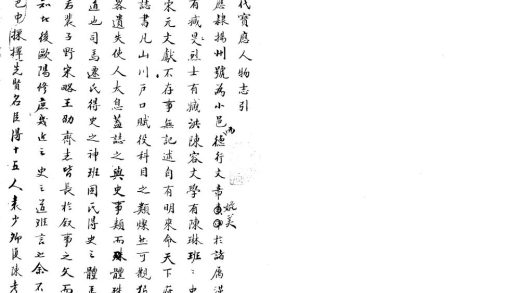 代寶應人物志引
應隸揚州號為小邑而德行文章媲美於諸屬
有臧旻烈士有臧洪陳容文學有陳琳班班史
宋元文獻不存事無記述自有明來命天下
誌書凡山川戶口賦役科目之類燦然可觀
畧遺失使人太息蓋誌之與史事類而體殊
道也司馬遷氏得史之神班固氏得史之體
若裴子野宋略王劭齊志皆長於敘事之文而
知此後歐陽修庶幾近之史之道班言之余不
邑中採擇先賢名臣得十五人袁少卿陳